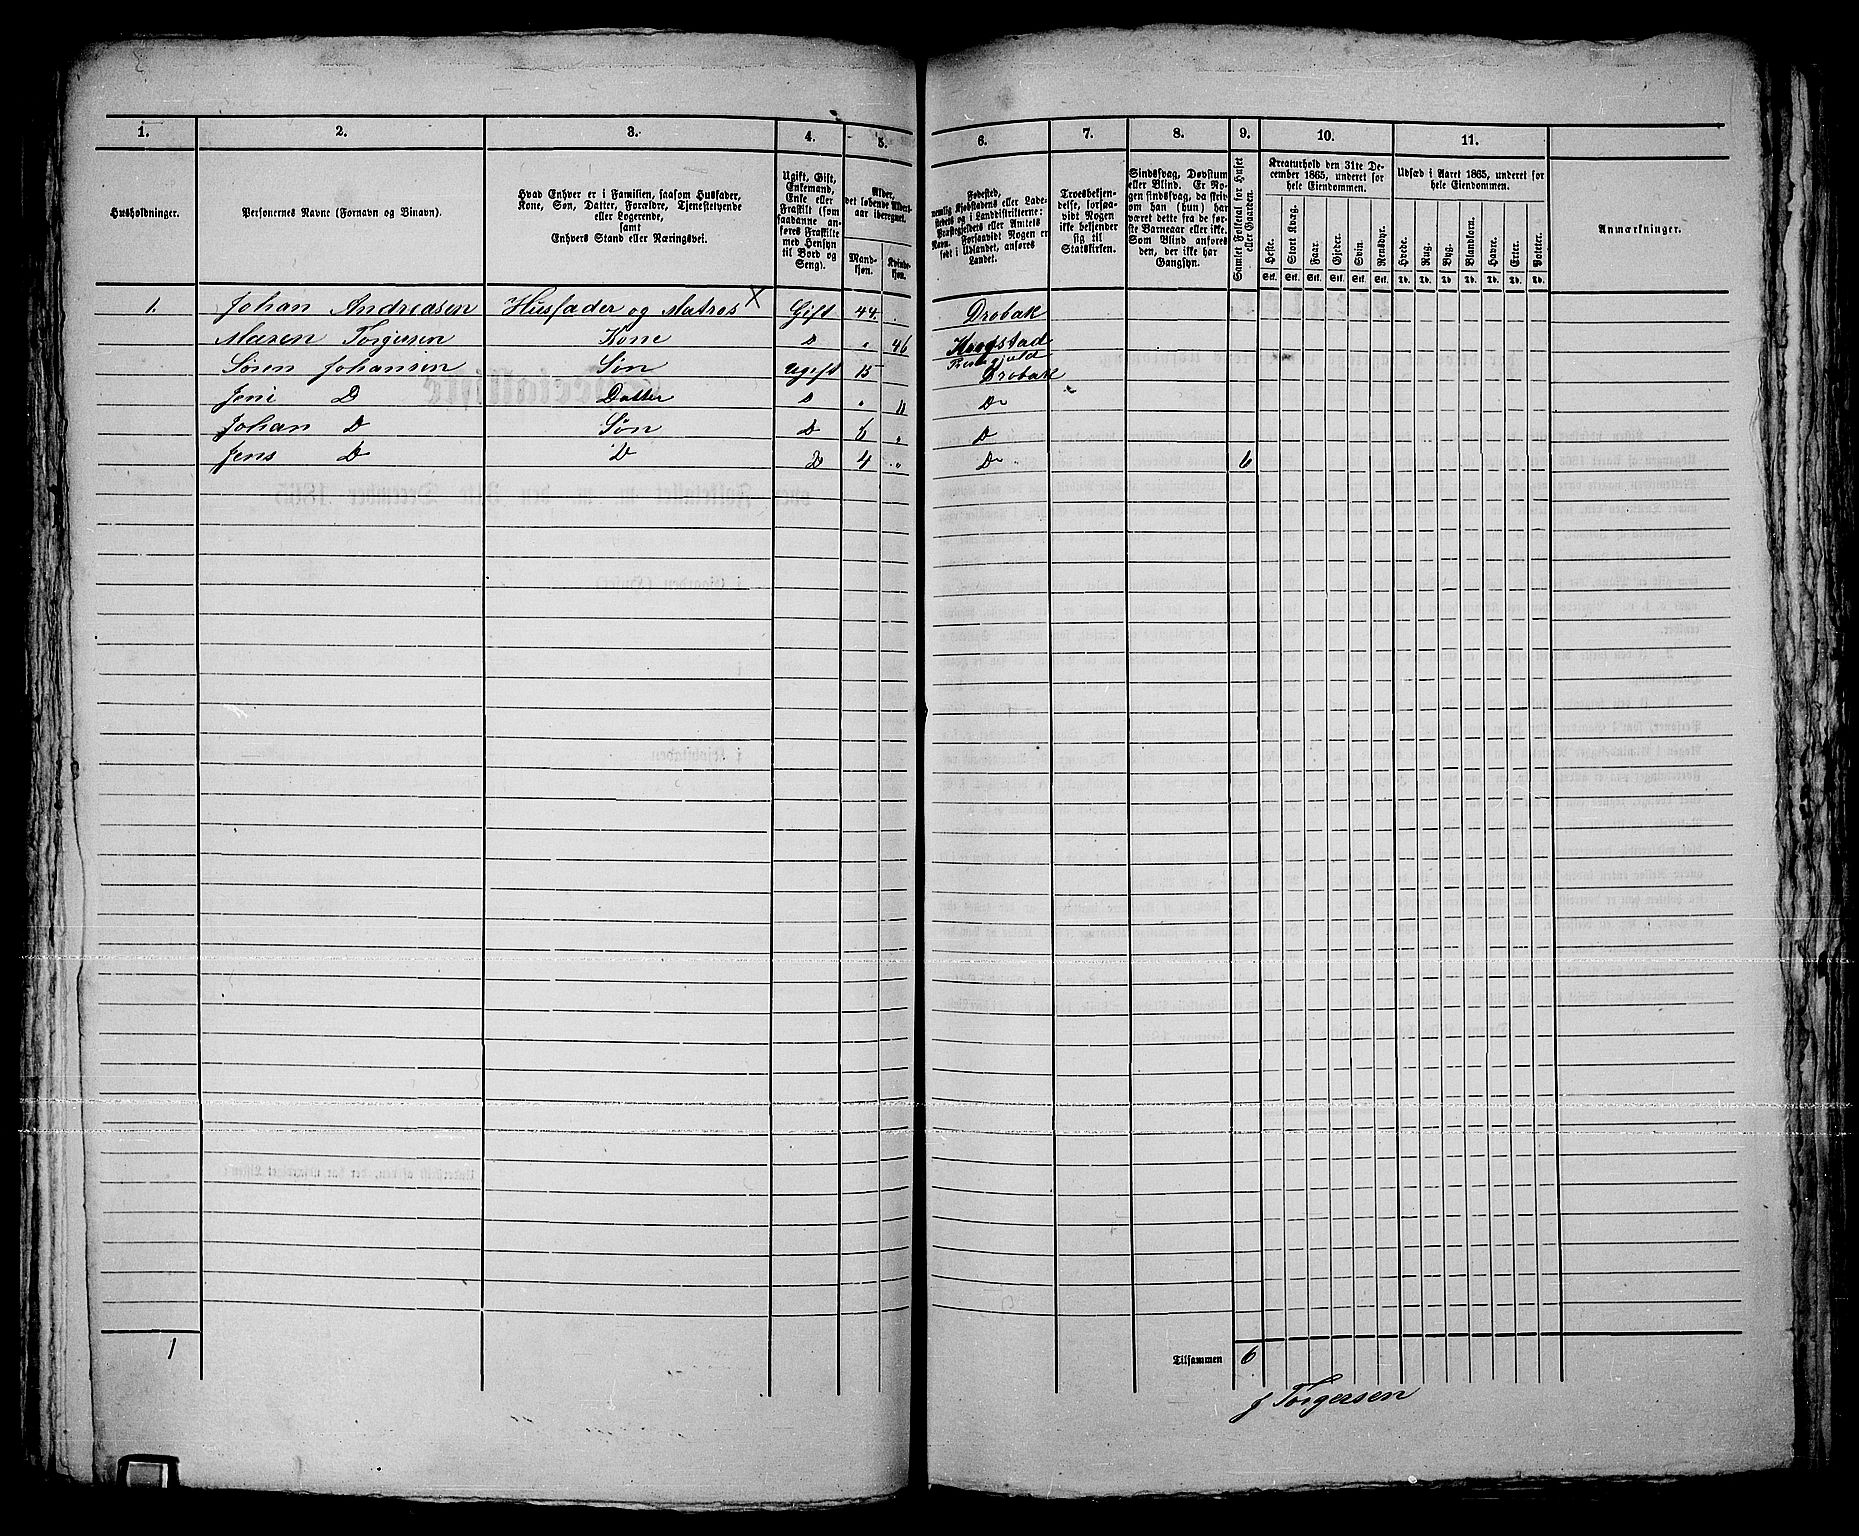 1. 2. 3. 4. 5. 6. 7. 8. 9. 10. 11.
Husholdninger.
Personernes Navne (Fornavn og Binavn).
Hvad Enhver er i Familien, saasom Husfader,
Kone, Søn, Datter, Forældre, Tjenestetyende
eller Logerende,
samt
Enhvers Stand eller Næringsvei.
Ugift, Gift,
Enkemand,
Enke eller
Fraskilt (som
saadanne an-
føres Fraskilte
med Hensyn
til Bord og
Seng).
Alder,
det løbende Alders-
aar iberegnet.
Mand-
kjøn.
Kvinde-
kjøn.
Fødested,
nemlig Kjøbstadens eller Lade-
stedets og i Landdistrikterne:
Præstegjeldets eller Amtets
Navn. Forsaavidt Nogen er
født i Udlandet, anføres
Landet.
Troesbekjen-
delse, forsaa-
vidt Nogen
ikke bekjender
sig til
Statskirken.
Sindssvag, Døvstum
eller Blind. Er No-
gen sindssvag, da skriv
om han (hun) har
været dette fra de før-
ste Barneaar eller ikke.
Som Blind anføres
den, der ikke har
Gangsyn.
Samlet Folketal for Huset
eller Gaarden.
Kreaturhold den 31te De-
cember 1865, underet for
hele Eiendommen.
Heste. Stort Kvæg. Faar. Gjeder. Svin. Rensdyr.
Stk. Stk. Stk. Stk. Stk. Stk.
Udsæd i Aaret 1865, underet for
hele Eiendommen.
Hvede. Rug. Byg. Blandkorn. Havre. Erter. Poteter.
Td. Td. Td. Td. Td. Td. Td.
Anmærkninger.
1. Johan Andreasen Husfader og Matros X Gift 44. " Drøbak
Maren Torgiesen Kone D " 46 Krogstad
Præstegjeld
Søren Johansen Søn Ugift 15 Drøbak
Jeni D Datter D " 11 Do
Johan D Søn D 6 " D
Jens D D D 4 " Do 6
1
Tilsammen 6
J Torgersen